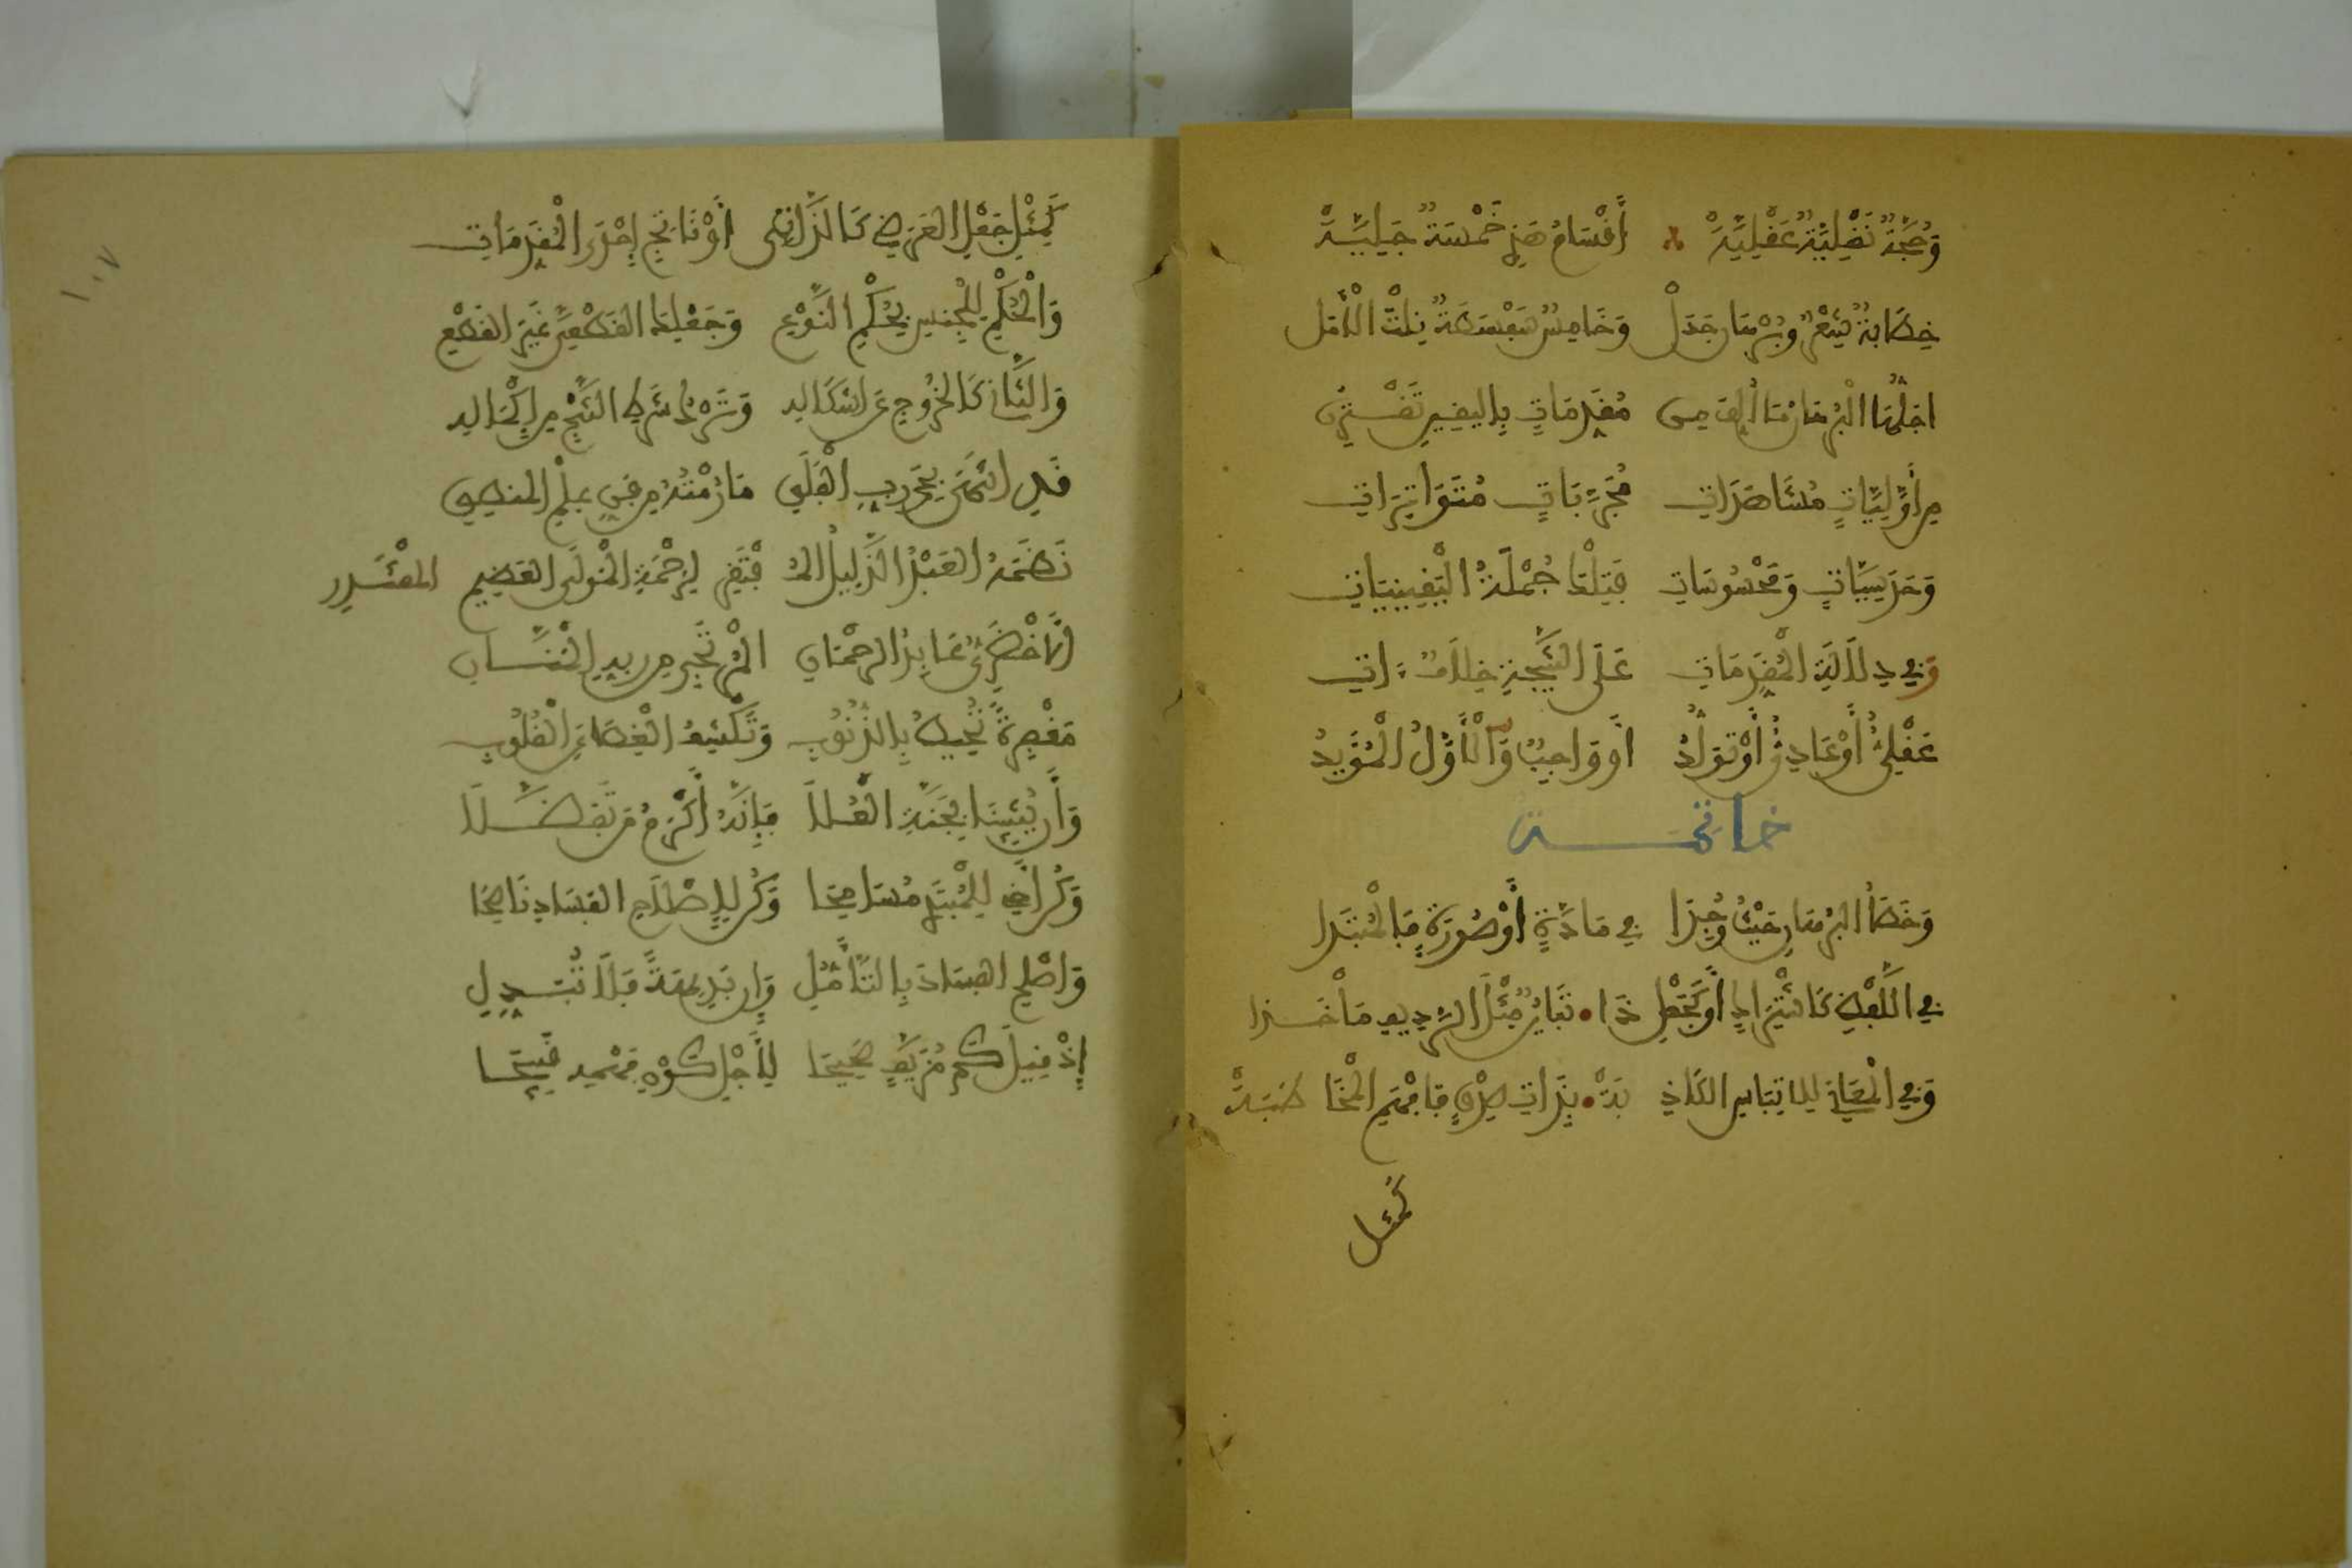 وَحُجَّةٌ نَقْلِيَّةٌ عَقْلِيَّهْ أَقْسَامُ هَذِي خَمْسَةٌ جَلِيَّهْ
خِطَابَةٌ شِعْرٌ وَبُرْهَانٌ جَدَلْ وَخَامِسٌ سَفْسَطَةٌ نِلْتَ الْأَمَلْ
أَجَلُّهَا الْبُرْهَانُ مَا أُلِّفَ مِنْ مُقَدِّمَاتٍ بِالْيَقِينِ تَقْتَرِنْ
مِنْ أَوَّلِيَّاتٍ مُشَاهَدَاتِ مُجَرَّبَاتٍ مُتَوَاتِرَاتِ
وَحَدَسِيَّاتٍ وَمَحْسُوسَاتِ فَتِلْكَ جُمْلَةُ الْيَقِينِيَّاتِ
وَفِي دِلَالَةِ الْمُقَدِّمَاتِ عَلَى النَّتِيجَةِ خِلَافٌ ءَاتِ
عَقْلِيٌّ أَوْ عَادِيٌّ أَوْ تَوَلُّدُ أَوْ وَاجِبٌ وَالْأَوَّلُ الْمُؤَيَّدُ
خاتمة
وَخَطَأُ الْبُرْهَانِ حَيْثُ وُجِدَا فِي مَادَّةٍ أَوْ صُورَةٍ فَالْمُبْتَدَا
فِي اللَّفْظِ كَاشْتِرَاكٍ أَوْ كَجَعْلِ ذَا تَبَايُنٍ مِثْلَ الرَّدِيفِ مَأْخَذَا
وَفِي الْمَعَانِي لِالْتِبَاسِ الْكَاذِ بَهْ بِذَاتِ صِدْقٍ فَافْهَمِ الْمُخَا طَبَهْ
كَمِثْلِ
كَمِثْلِ جَعْلِ الْعَرَضِي كَالذَّاتِي أَوْ نَاتِجٍ إِحْدَى الْمُقَدِّمَاتِ
وَالْحُكْمِ لِلْجِنْسِ بِحُكْمِ النَّوْعِ وَجَعْلِ كَالْقَطْعِيِّ غَيْرَ الْقَطْعِي
وَالثَّانِ كَالْخُرُوجِ عَنْ أَشْكَالِهِ وَتَرْكِ شَرْطِ النَّتْجِ مِنْ إِكْمَالِهِ
قَدِ انْتَهَى بِحَمْدِ رَبِّ الْفَلَقِ مَا رُمْتُهُ مِنْ فَنِّ عِلْمِ الْمَنْطِقِ
نَظَمَهُ الْعَبْدُ الذَّلِيلُ الْمُ فْتَقِرْ لِرَحْمَةِ الْمَوْلَى الْعَظِيمِ الْمُقْتَدِرْ
الْأَخْضَرِيُّ عَابِدُ الرَّحْمَانِ الْمُرْتَجِي مِنْ رَبِّهِ الْمَنَّانِ
مَغْفِرَةً تُحِيطُ بِالذُّنُوبِ وَتَكْشِفُ الْغِطَا عَنِ الْقُلُوبِ
وَأَنْ يُثِيبَنَا بِجَنَّةِ الْعُلَا فَإِنَّهُ أَكْرَمُ مَنْ تَفَضَّلَا
وَكُنْ أَخِي لِلْمُبْتَدِي مُسَامِحَا وَكُنْ لِإِصْلَاحِ الْفَسَادِ نَاصِحَا
وَأَصْلِحِ الْفَسَادَ بِالتَّأَمُّلِ وَإِنْ بَدِيهَةً فَلَا تُبَدِّلِ
إِذْ قِيلَ كَمْ مُزَيِّفٍ صَحِيحَا لِأَجْلِ كَوْنِ فَهْمِهِ قَبِيحَا
١٠٧